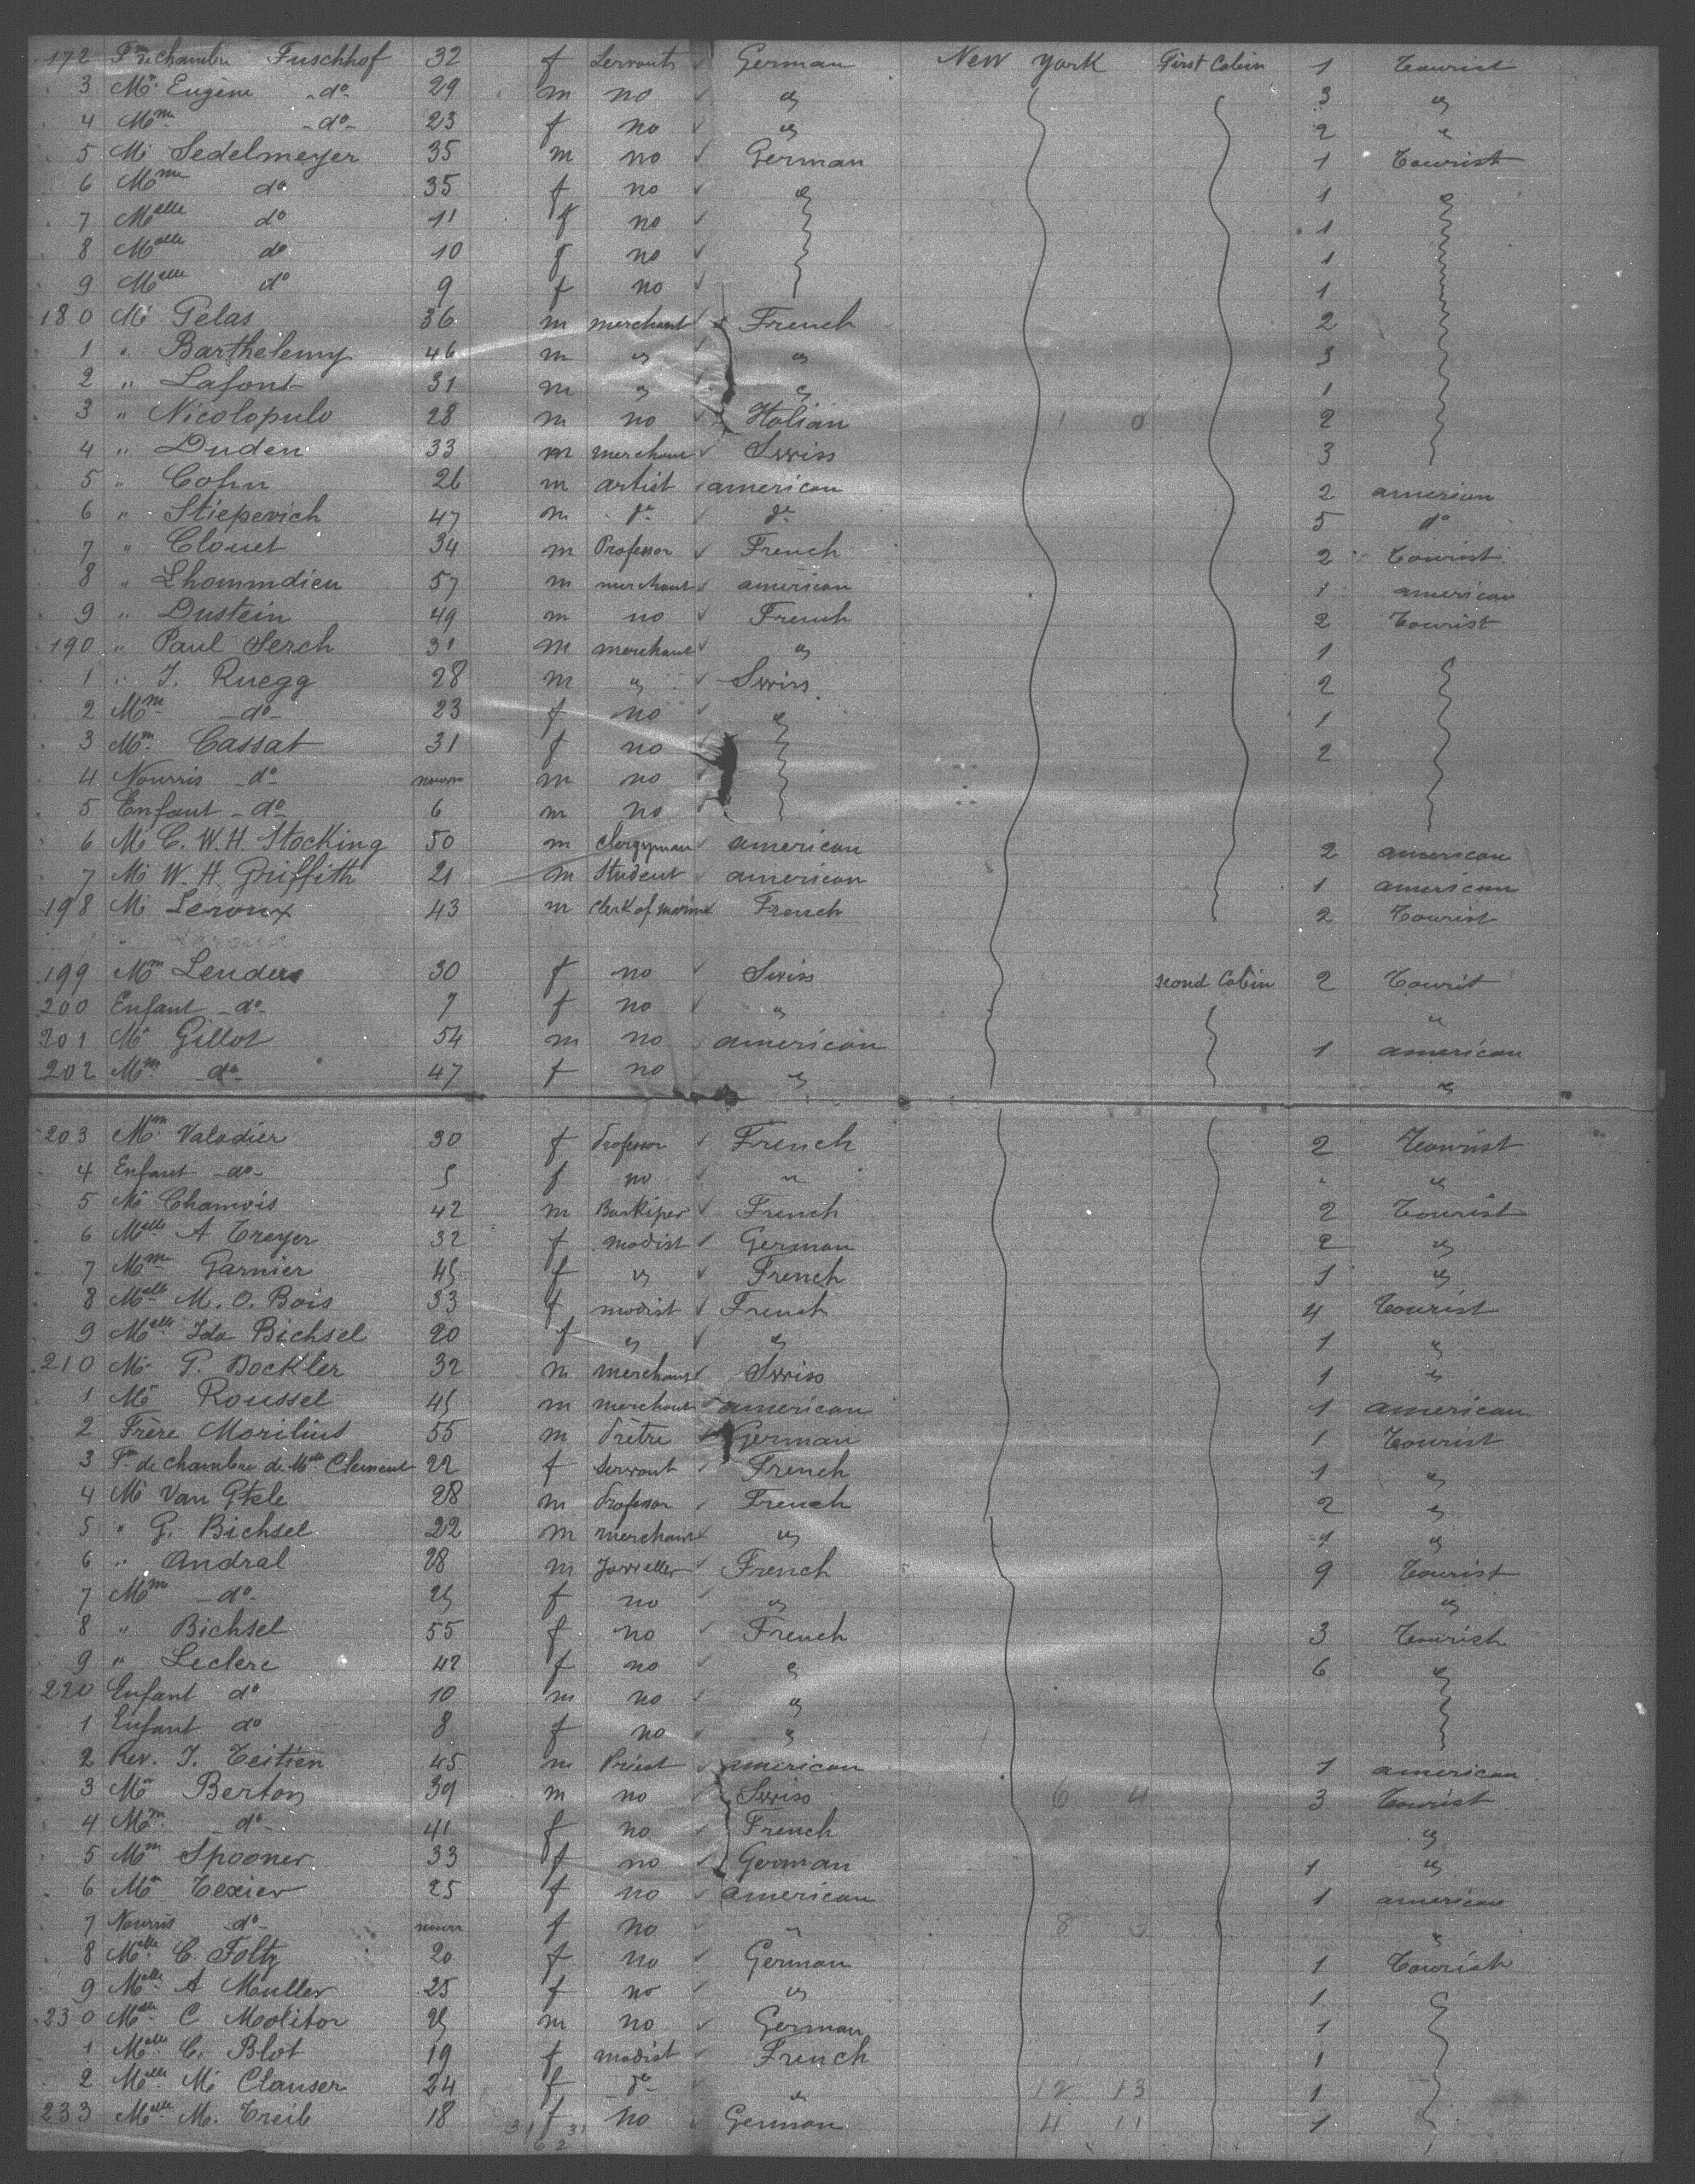 172 Fm de chambre Fuschhof 32 f Servants ✓ German New York First Cabin 1 Tourist
3 Mr Eugène -do- 29 m no ✓ " 3 "
4 Mme -do- 23 f no ✓ " 2 "
5 Mr Sedelmeyer 35 m no ✓ German 1 Tourist
6 Mme do 35 f no ✓ " 1 "
7 Melle do 11 f no ✓ 1
8 Melle do 10 f no ✓ 1
9 Melle do 9 f no ✓ 1
180 Mr Pelas 36 m merchant ✓ French 2
1 " Barthelemy 46 m " ✓ " 3
2 " Lafont 31 m " " 1
3 " Nicolopulo 28 m no ✓ Italian 1 0 2
4 " Duden 33 m merchant ✓ Swiss 3
5 " Cohn 26 m artist ✓ american 2 american
6 " Stiepevich 47 m do ✓ do 5 do
7 " Clouet 34 m Professor ✓ French 2 Tourist
8 " Lhommdieu 57 m merchant ✓ american 1 american
9 " Dustein 49 m no ✓ French 2 Tourist
190 " Paul Serch 31 m merchant ✓ " 1
1 " J. Ruegg 28 m " ✓ Swiss 2
2 Mm -do- 23 f no ✓ " 1
3 Mm Cassat 31 f no 2
4 Nourris -do- m no
5 Enfant -do- 6 m no
6 Mr C. W. H. Stocking 50 m clergyman american 2 american
7 Mr W. H. Griffith 21 m Student ✓ american 1 american
198 Mr Leroux 43 m clerk of marine French 2 Tourist
199 Mm Lenders 30 f no ✓ Swiss second Cabin 2 Tourist
200 Enfant -do- 7 f no " "
201 Mr Gillot 54 m no american 1 american
202 Mm -do- 47 f no " "
203 Mm Valadier 30 f Professor ✓ French 2 Tourist
4 Enfant -do- 5 f no ✓ " " "
5 Mr Chamois 42 m Barkiper ✓ French 2 Tourist
6 Melle A Treyer 32 f modist ✓ German 2 "
7 Mme Garnier 45 f " ✓ French 1 "
8 Melle M. O. Bois 33 f modist ✓ French 4 Tourist
9 Melle Ida Bichsel 20 f " ✓ " 1 "
210 Mr P. Bockler 32 m merchant ✓ Swiss 1 "
1 Mr Roussel 45 m merchant american 1 american
2 Frère Morilius 55 m Prêtre ✓ German 1 Tourist
3 Fm de chambre de Melle Clement 22 f Servant ✓ French 1 "
4 Mr Van 28 m Professor ✓ French 2 "
5 " G. Bichsel 22 m merchant ✓ " 1 "
6 " Andral 28 m Jorreller ✓ French 9 Tourist
7 Mm -do- 25 f no ✓ " "
8 " Bichsel 55 f no ✓ French 3 Tourist
9 " Leclerc 42 f no ✓ " 6 "
220 Enfant do 10 m no ✓ "
1 Enfant do 8 f no ✓ "
2 Rev. J. Teitien 45 m Priest ✓ american 1 american
3 Mr Berton 39 m no ✓ Swiss 6 4 3 Tourist
4 Mm -do- 41 f no ✓ French "
5 Mm Spooner 33 f no ✓ German 1 "
6 Mm Texier 25 f no ✓ american 1 american
7 Nourris -do- nourr f no ✓ " 8 3 "
8 Melle C. Foltz 20 f no ✓ German 1 Tourist
9 Melle A Muller 25 f no ✓ " 1
230 Melle C Molitor 25 m no ✓ German 1
1 Melle C. Blot 19 f modist ✓ French 1
2 Melle M Clauser 24 f do ✓ " 12 13 1
233 Melle M. Treib 18 f no German 4 11 1